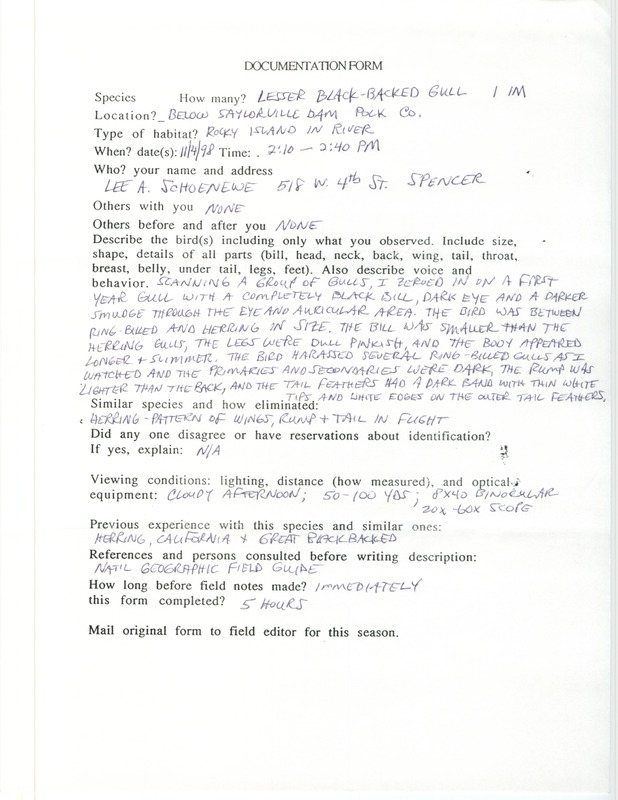 DOCUMENTATION FORM
Species How many? LESSER BLACK-BACKED GULL 1 IM
Location? BELOW SAYLORVILLE DAM POLK CO.
Type of habitat? ROCKY ISLAND IN RIVER
When? date(s): 11/4/98 Time: . 2:10 — 2:40 PM
Who? your name and address
LEE A. SCHOENEWE 518 W. 4th ST. SPENCER
Others with you NONE
Others before and after you NONE
Describe the bird(s) including only what you observed. Include size,
shape, details of all parts (bill, head, neck, back, wing, tail, throat,
breast, belly, under tail, legs, feet). Also describe voice and
behavior. SCANNING A GROUP OF GULLS, I ZEROED IN ON A FIRST
YEAR GULL WITH A COMPLETELY BLACK BILL, DARK EYE AND A DARKER
SMUDGE THROUGH THE EYE AND AURICULAR AREA. THE BIRD WAS BETWEEN
RING-BILLED AND HERRING IN SIZE. THE BILL WAS SMALLER THAN THE
HERRING GULLS, THE LEGS WERE DULL PINKISH, AND THE BODY APPEARED
LONGER + SLIMMER. THE BIRD HARASSED SEVERAL RING-BILLED GULLS AS I
WATCHED AND THE PRIMARIES AND SECONDARIES WERE DARK, THE RUMP WAS
LIGHTER THAN THE BACK, AND THE TAIL FEATHERS HAD A DARK BAND WITH THIN WHITE
TIPS AND WHITE EDGES ON THE OUTER TAIL FEATHERS.
Similar species and how eliminated:
HERRING - PATTERN OF WINGS, RUMP + TAIL IN FLIGHT
Did any one disagree or have reservations about identification?
If yes, explain: N/A
Viewing conditions: lighting, distance (how measured), and optical
equipment: CLOUDY AFTERNOON; 50-100 YDS; 8X40 BINOCULAR
20X-60X SCOPE
Previous experience with this species and similar ones:
HERRING, CALIFORNIA + GREAT BLACKBACKED
References and persons consulted before writing description:
NAT'L GEOGRAPHIC FIELD GUIDE
How long before field notes made? IMMEDIATELY
this form completed? 5 HOURS
Mail original form to field editor for this season.